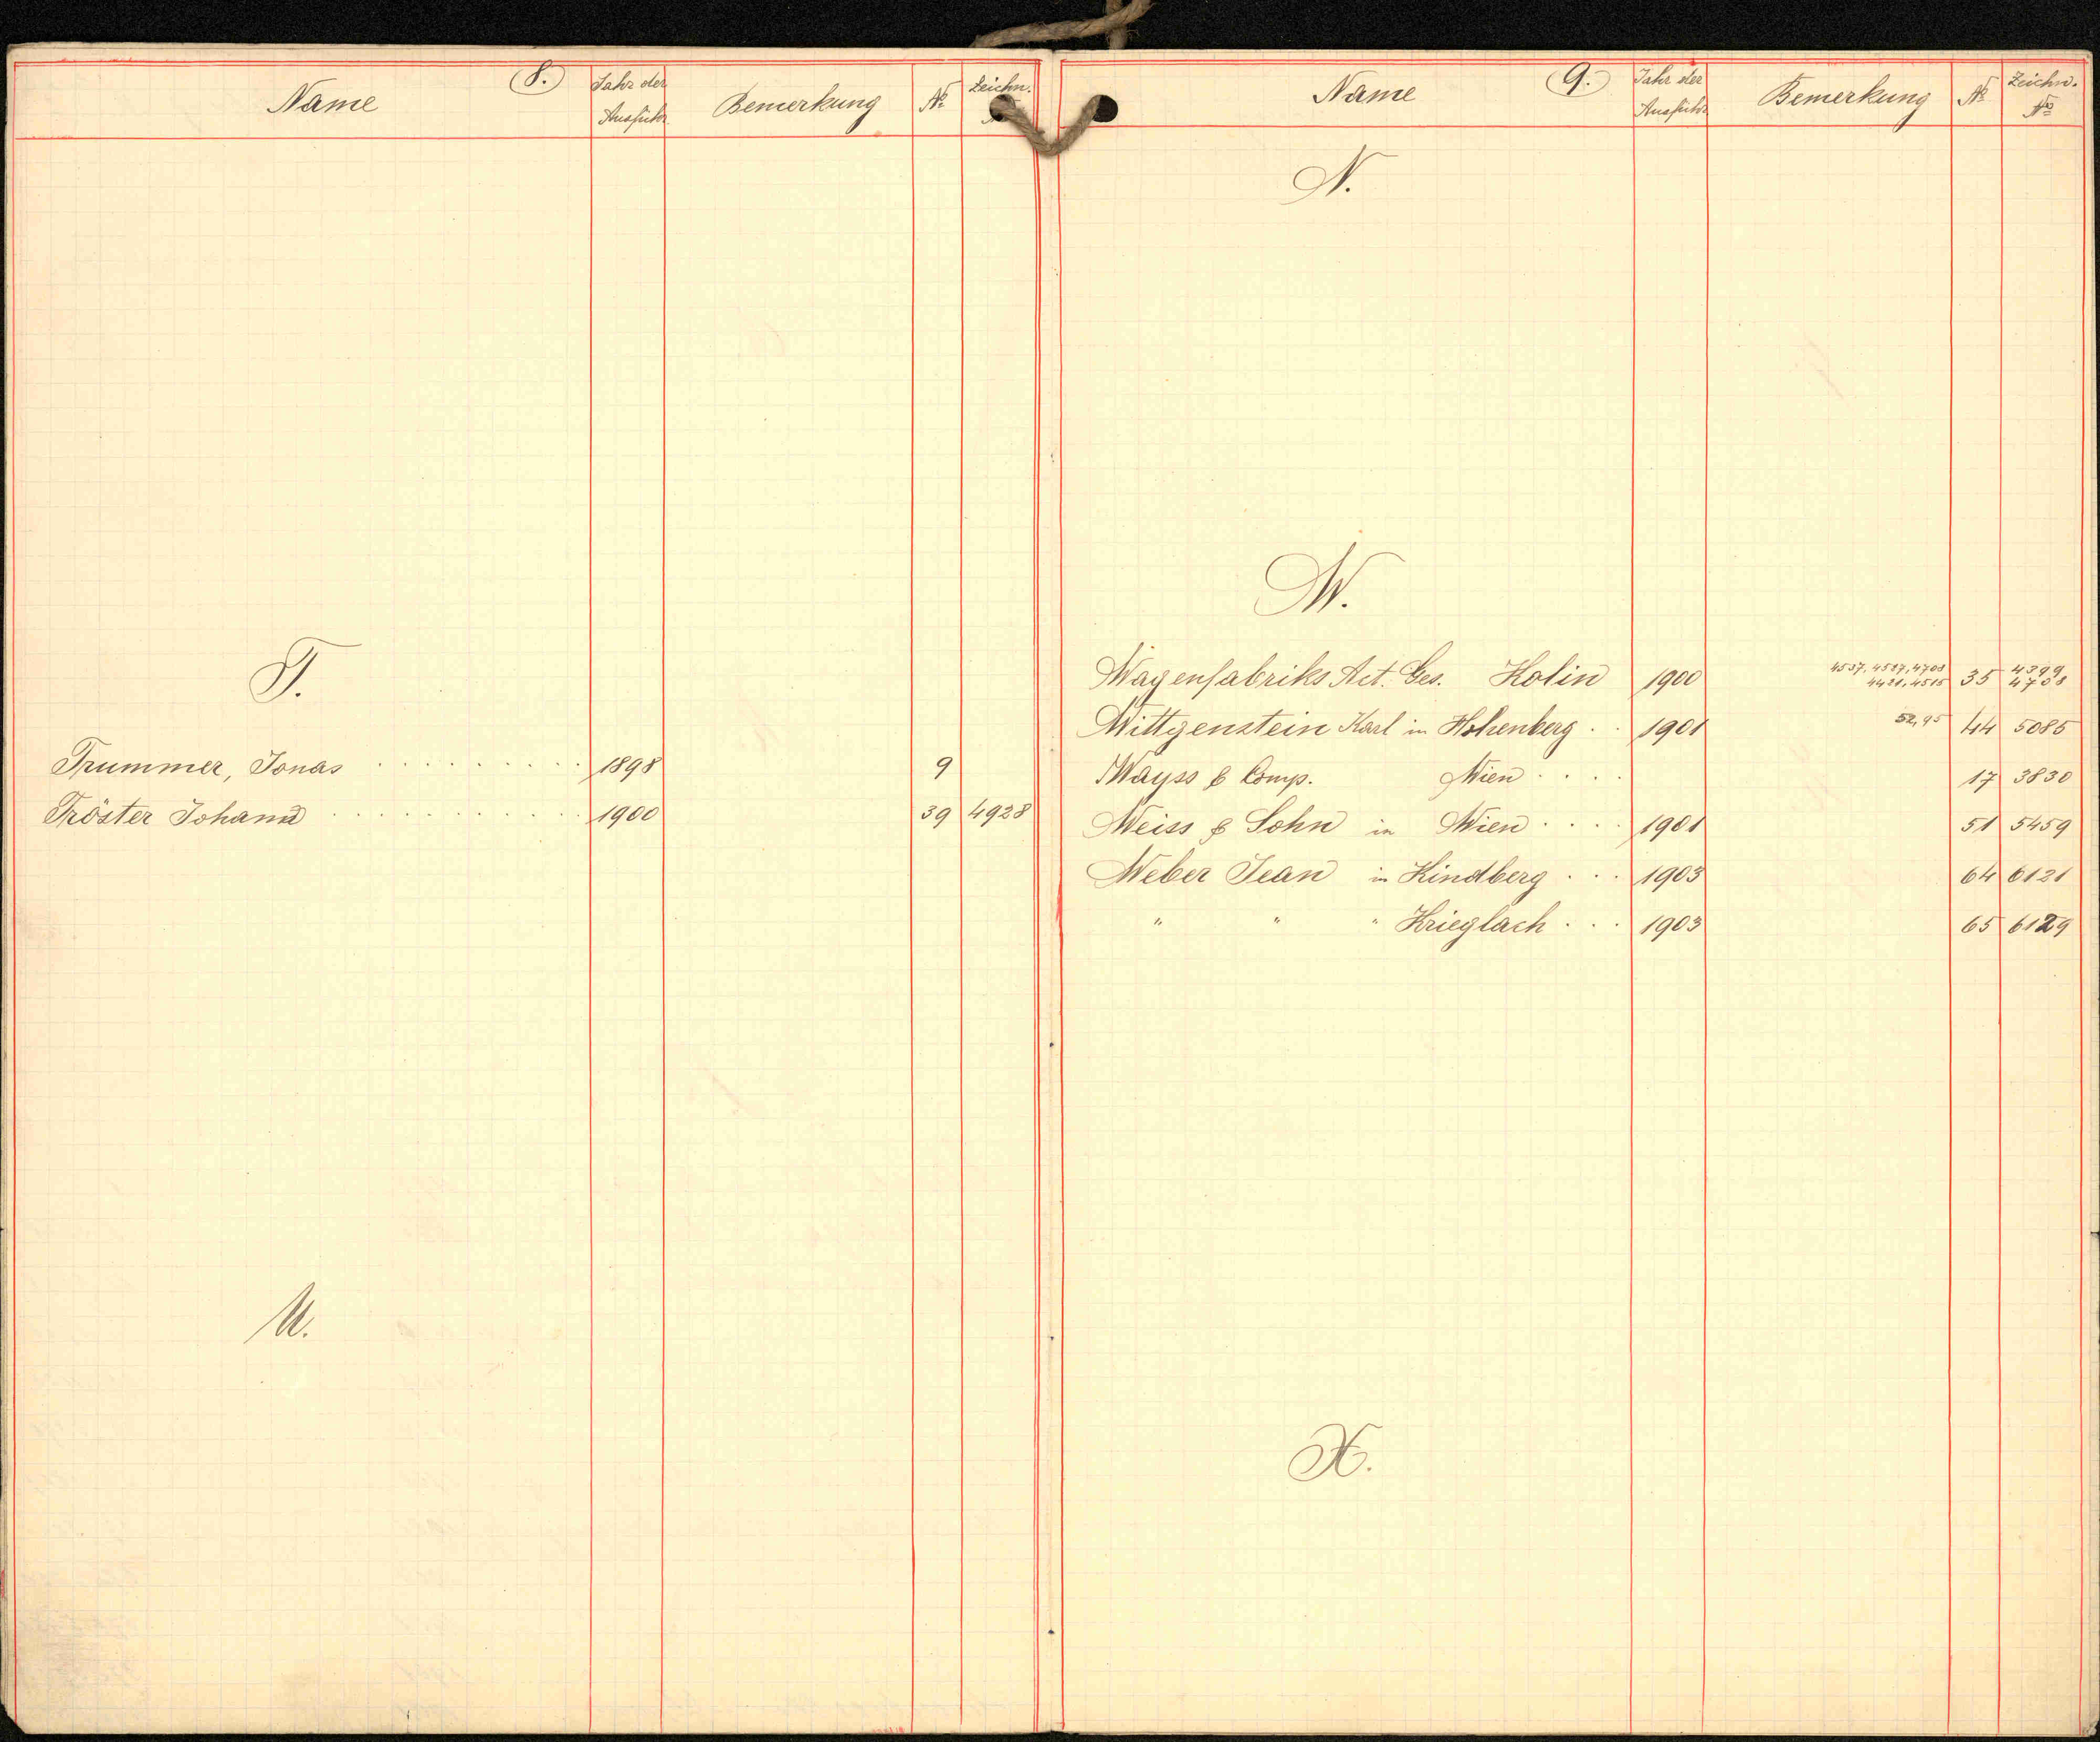 Name 8. Jahr der Ausführ. Bemerkung № Zeichn.
T.
Trummer, Jonas . . . . . . . . . . 1898 9
Tröster Johann . . . . . . . . . . . . 1900 39 4928
U.
Name 9. Jahr der Ausführ. Bemerkung № Zeichn. №
V.
W.
Wagenfabriks Act. Ges. Kolin 1900 4537, 4587, 4708 35 4399,
4421, 4515 4708
Wittgenstein Karl in Hohenberg . . 1901 52,95 44 5085
Wayss & Comp. Wien . . . . 17 3830
Weiss & Sohn in Wien . . . . 1901 51 5459
Weber Jean in Kindberg . . . 1903 64 6121
" " " Krieglach . . . 1903 65 6129
X.